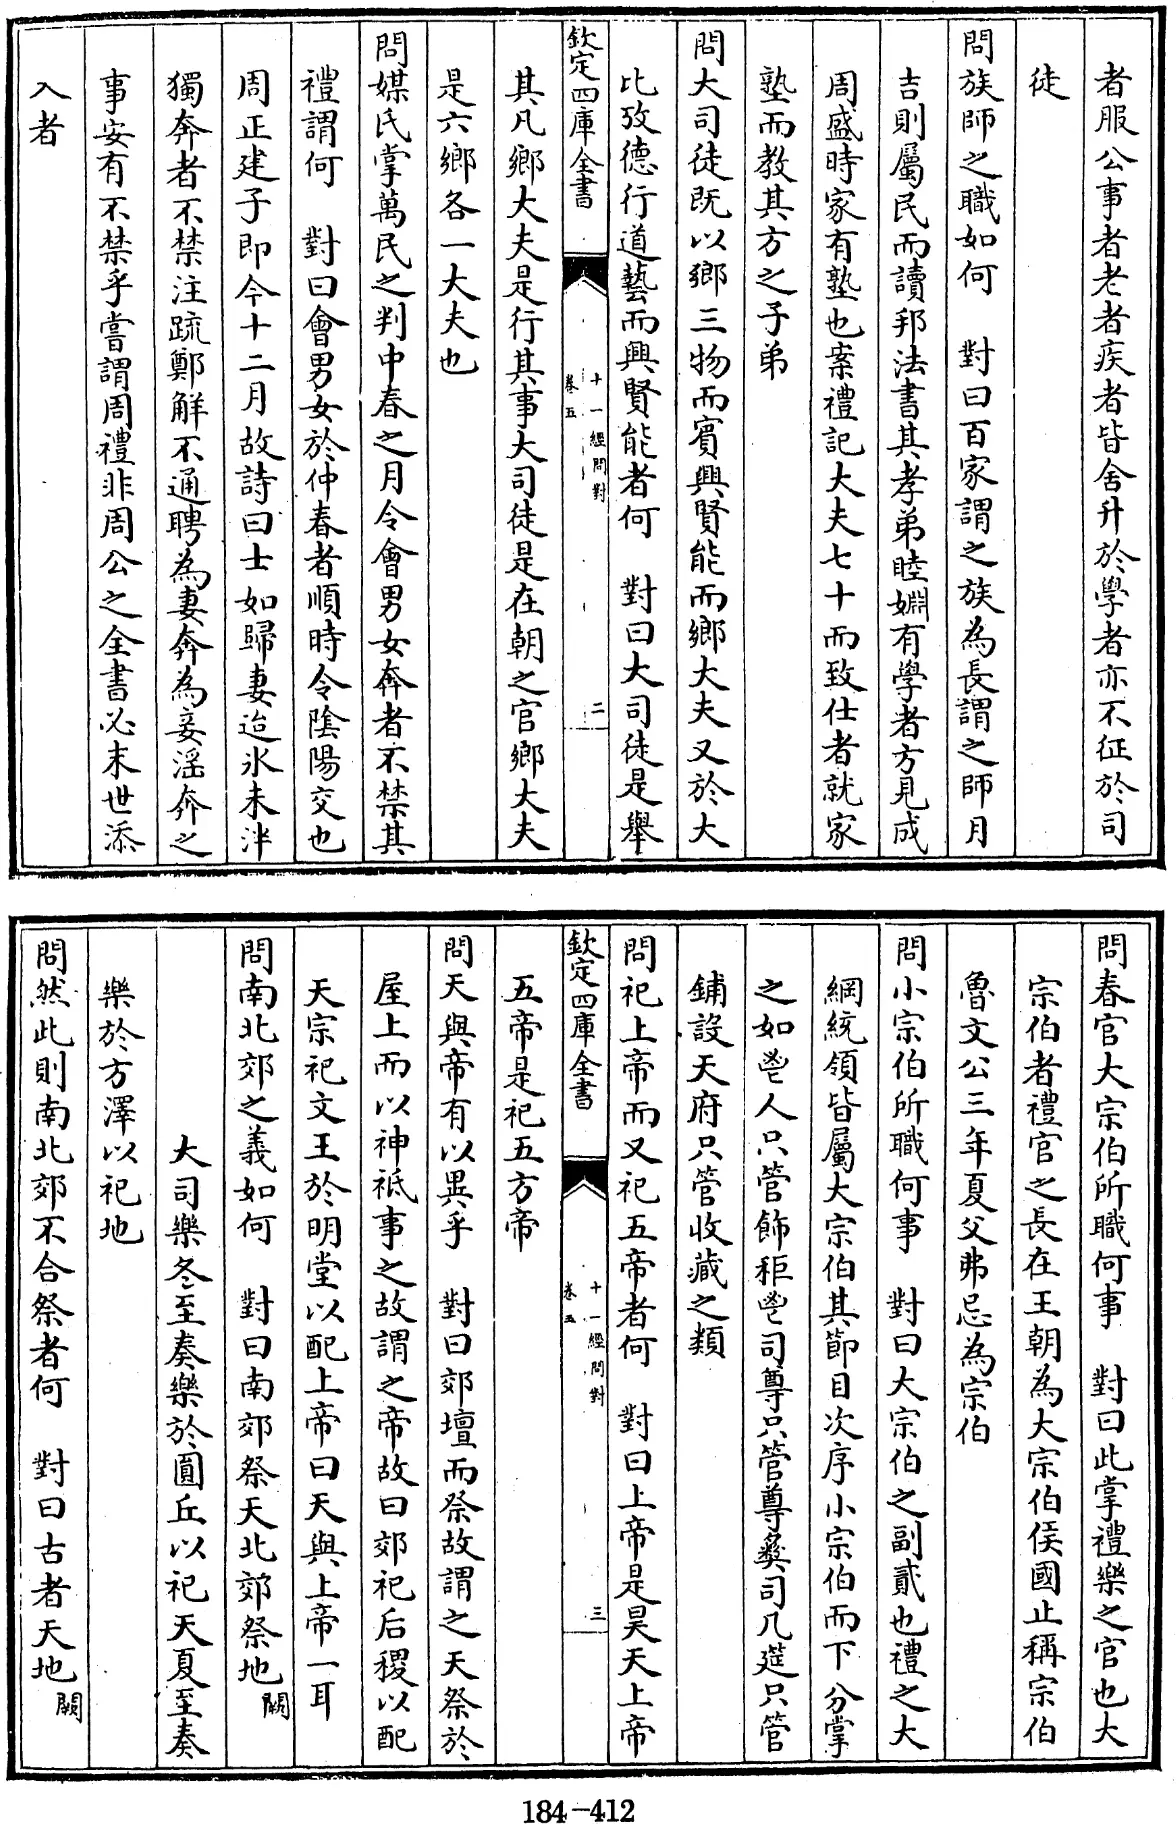 者服公事者老者疾者皆舍升於學者亦不征於司
徒
問族師之職如何　對曰百家謂之族為長謂之師月
吉則屬民而讀邦法書其孝弟睦婣有學者方見成
周盛時家有塾也案禮記大夫七十而致仕者就家
塾而教其方之子弟
問大司徒既以鄉三物而賓興賢能而鄉大夫又於大
比攷德行道藝而興賢能者何　對曰大司徒是舉
欽定四庫全書
十一經問對
卷五
二
其凡鄉大夫是行其事大司徒是在朝之官鄉大夫
是六鄉各一大夫也
問媒氏掌萬民之判中春之月令會男女奔者不禁其
禮謂何　對曰會男女於仲春者順時令陰陽交也
周正建子即今十二月故詩曰士如歸妻迨氷未泮
獨奔者不禁注疏鄭解不通聘為妻奔為妾滛奔之
事安有不禁乎嘗謂周禮非周公之全書必末世添
入者
問春官大宗伯所職何事　對曰此掌禮樂之官也大
宗伯者禮官之長在王朝為大宗伯侯國止稱宗伯
魯文公三年夏父弗忌為宗伯
問小宗伯所職何事　對曰大宗伯之副貳也禮之大
綱統領皆屬大宗伯其節目次序小宗伯而下分掌
之如鬯人只管飾秬鬯司尊只管尊彛司几筵只管
鋪設天府只管收藏之類
問祀上帝而又祀五帝者何　對曰上帝是昊天上帝
欽定四庫全書
十一經問對
卷五
三
五帝是祀五方帝
問天與帝有以異乎　對曰郊壇而祭故謂之天祭於
屋上而以神祇事之故謂之帝故曰郊祀后稷以配
天宗祀文王於明堂以配上帝曰天與上帝一耳
問南北郊之義如何　對曰南郊祭天北郊祭地闕
大司樂冬至奏樂於圓丘以祀天夏至奏
樂於方澤以祀地
問然此則南北郊不合祭者何　對曰古者天地闕
184-412